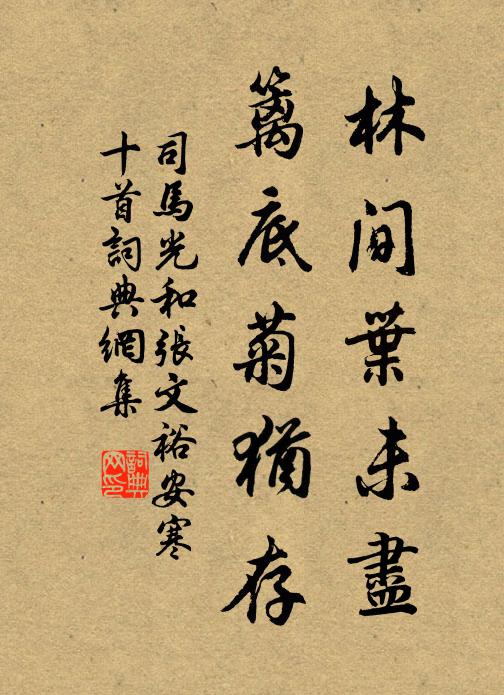 林間葉未盡
籬底菊猶存
司馬光和張文裕安寒
十首詞典網集
詞典網印